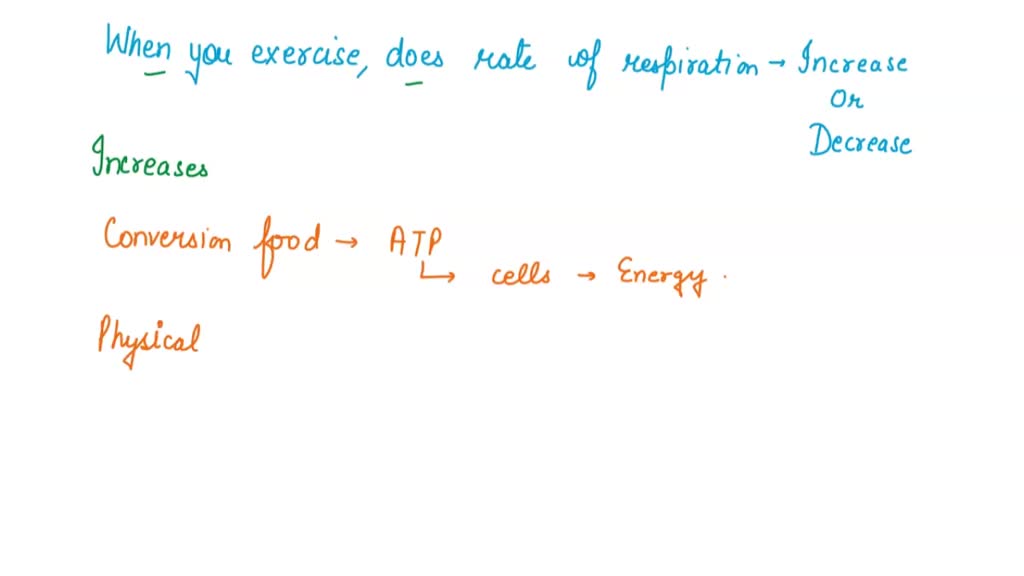 When you exercise, does rate of respiration → Increase
Or
Decrease
Increases
Conversion food → ATP
↳ cells → Energy .
Physical